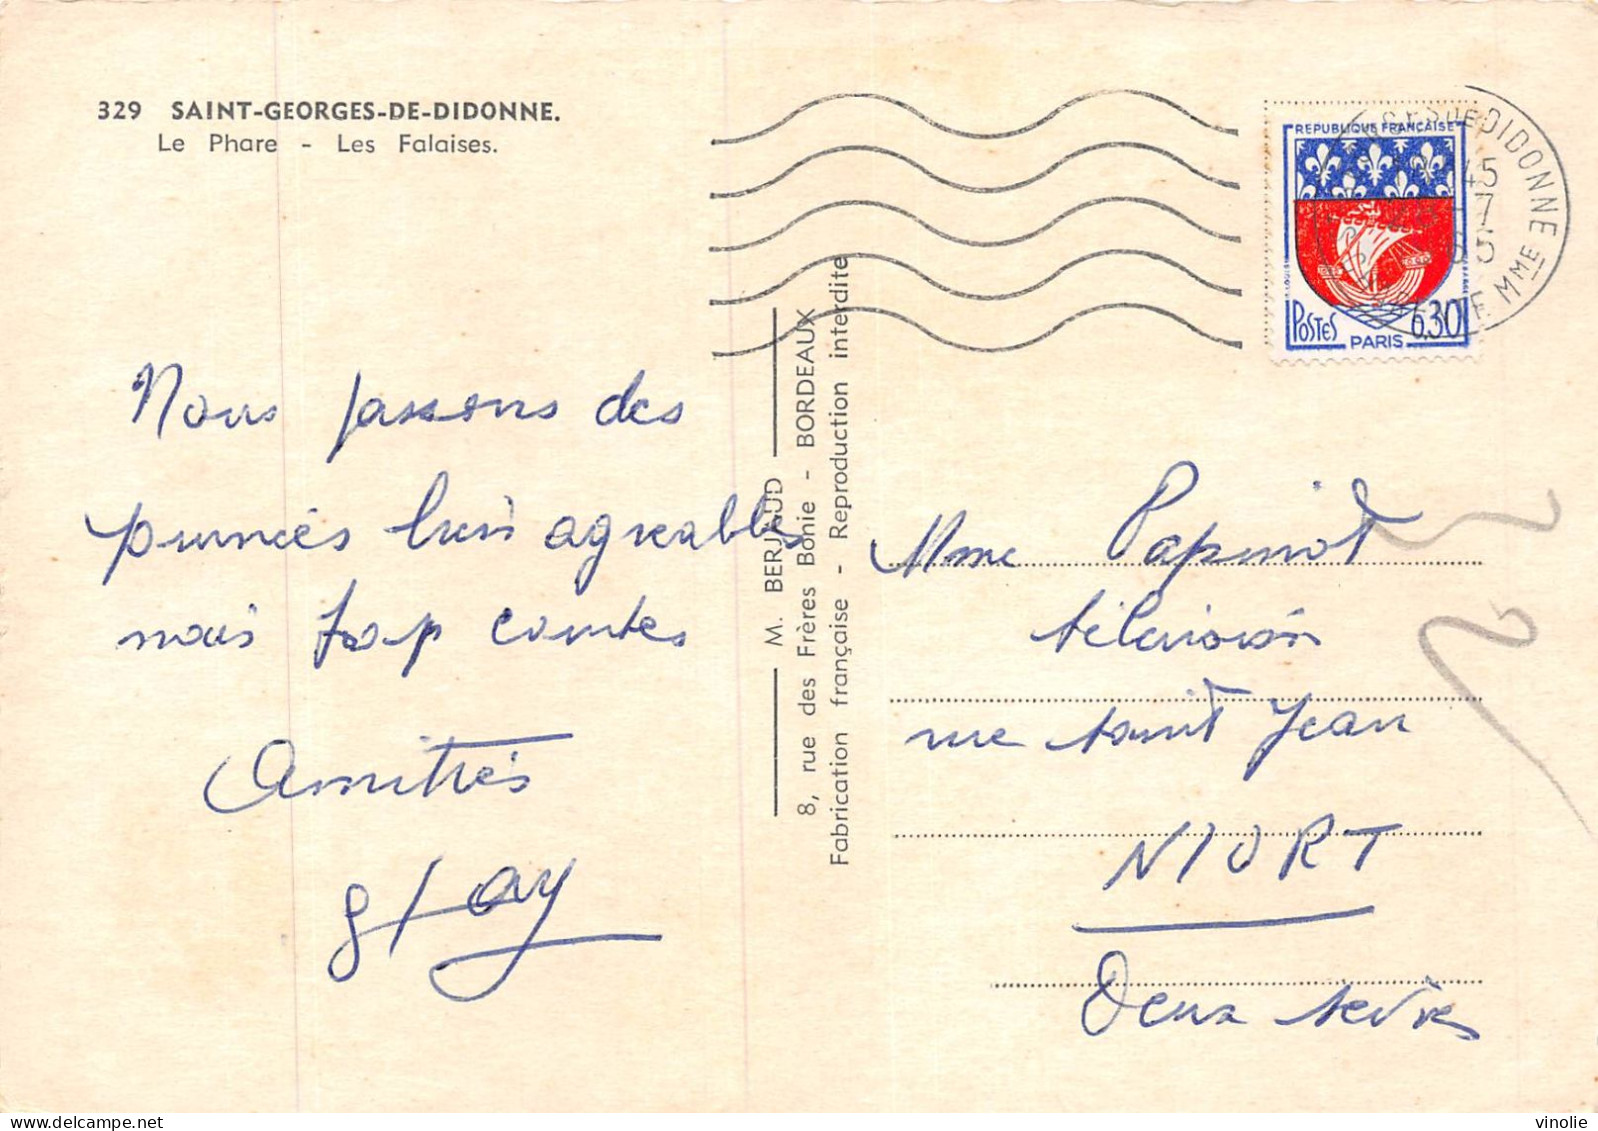 329 SAINT-GEORGES-DE-DIDONNE.
Le Phare - Les Falaises.
Nous passons des
journées bien agréables
mais trop courtes
Amitiés
M. BERJAUD
8, rue des Frères Bonie - BORDEAUX
Fabrication française - Reproduction interdite
REPUBLIQUE FRANÇAISE
POSTES
PARIS
0,30
DE DIDONNE
45
-7
65
MME
Mme Papinot
télévision
rue saint Jean
NIORT
Deux sèvres
vinolie